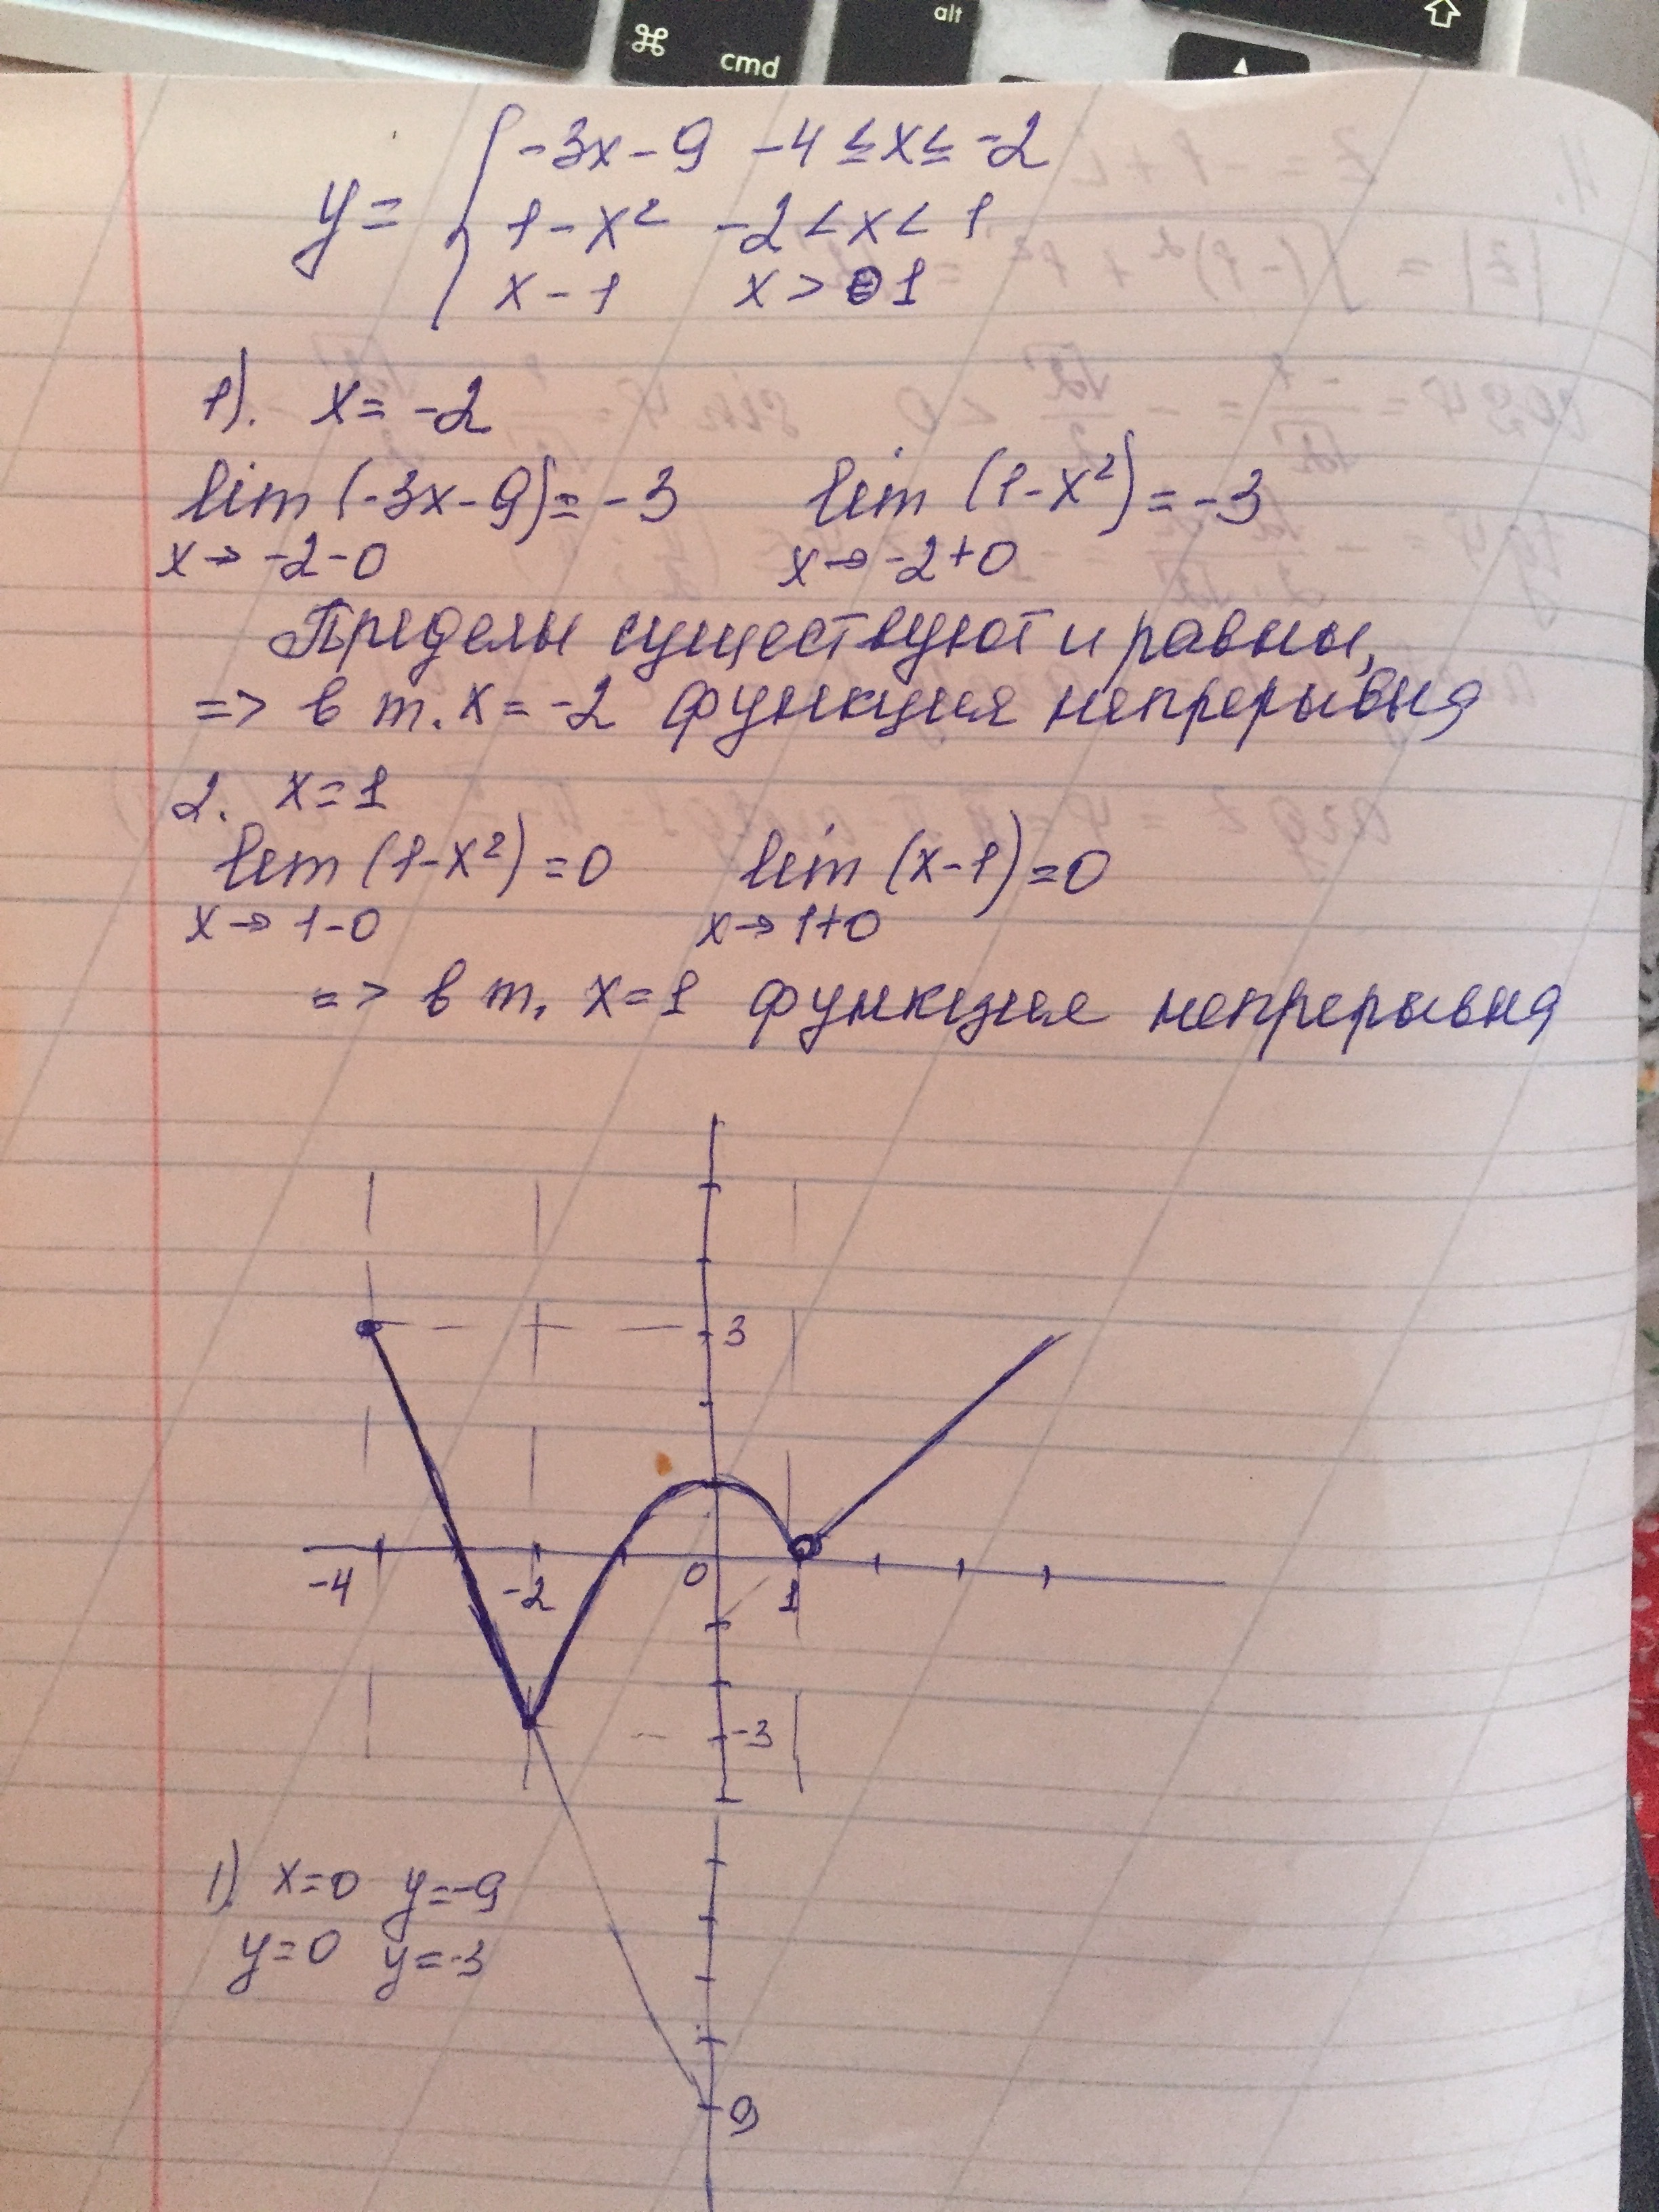 alt
⌘ cmd
y = { -3x - 9   -4 ≤ x ≤ -2
1 - x²   -2 < x < 1
x - 1   x > 1
1). x = -2
lim (-3x-9) = -3   lim (1-x²) = -3
x→ -2-0   x→ -2+0
Пределы существуют и равны,
=> в т. x = -2 функция непрерывна
2. x = 1
lim (1-x²) = 0   lim (x-1) = 0
x→ 1-0   x→ 1+0
=> в т. x = 1 функция непрерывна
3
-4   -2   0   1
-3
1) x=0 y=-9
y=0 y=-3
-9